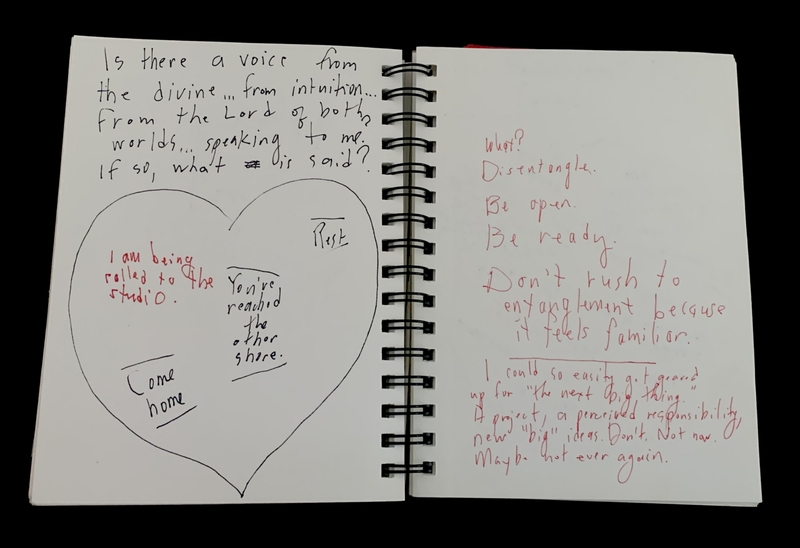 Is there a voice from
the divine... from intuition...
From the Lord of both
worlds... speaking to me.
If so, what is said?
Rest
I am being
called to the
studio.
You've
reached
the
other
shore.
Come
home
What?
Disentangle.
Be open.
Be ready.
Don't rush to
entanglement because
it feels familiar.
I could so easily get geared
up for "the next big thing."
A project, a perceived responsibility,
new "big" ideas. Don't. Not now.
Maybe not ever again.